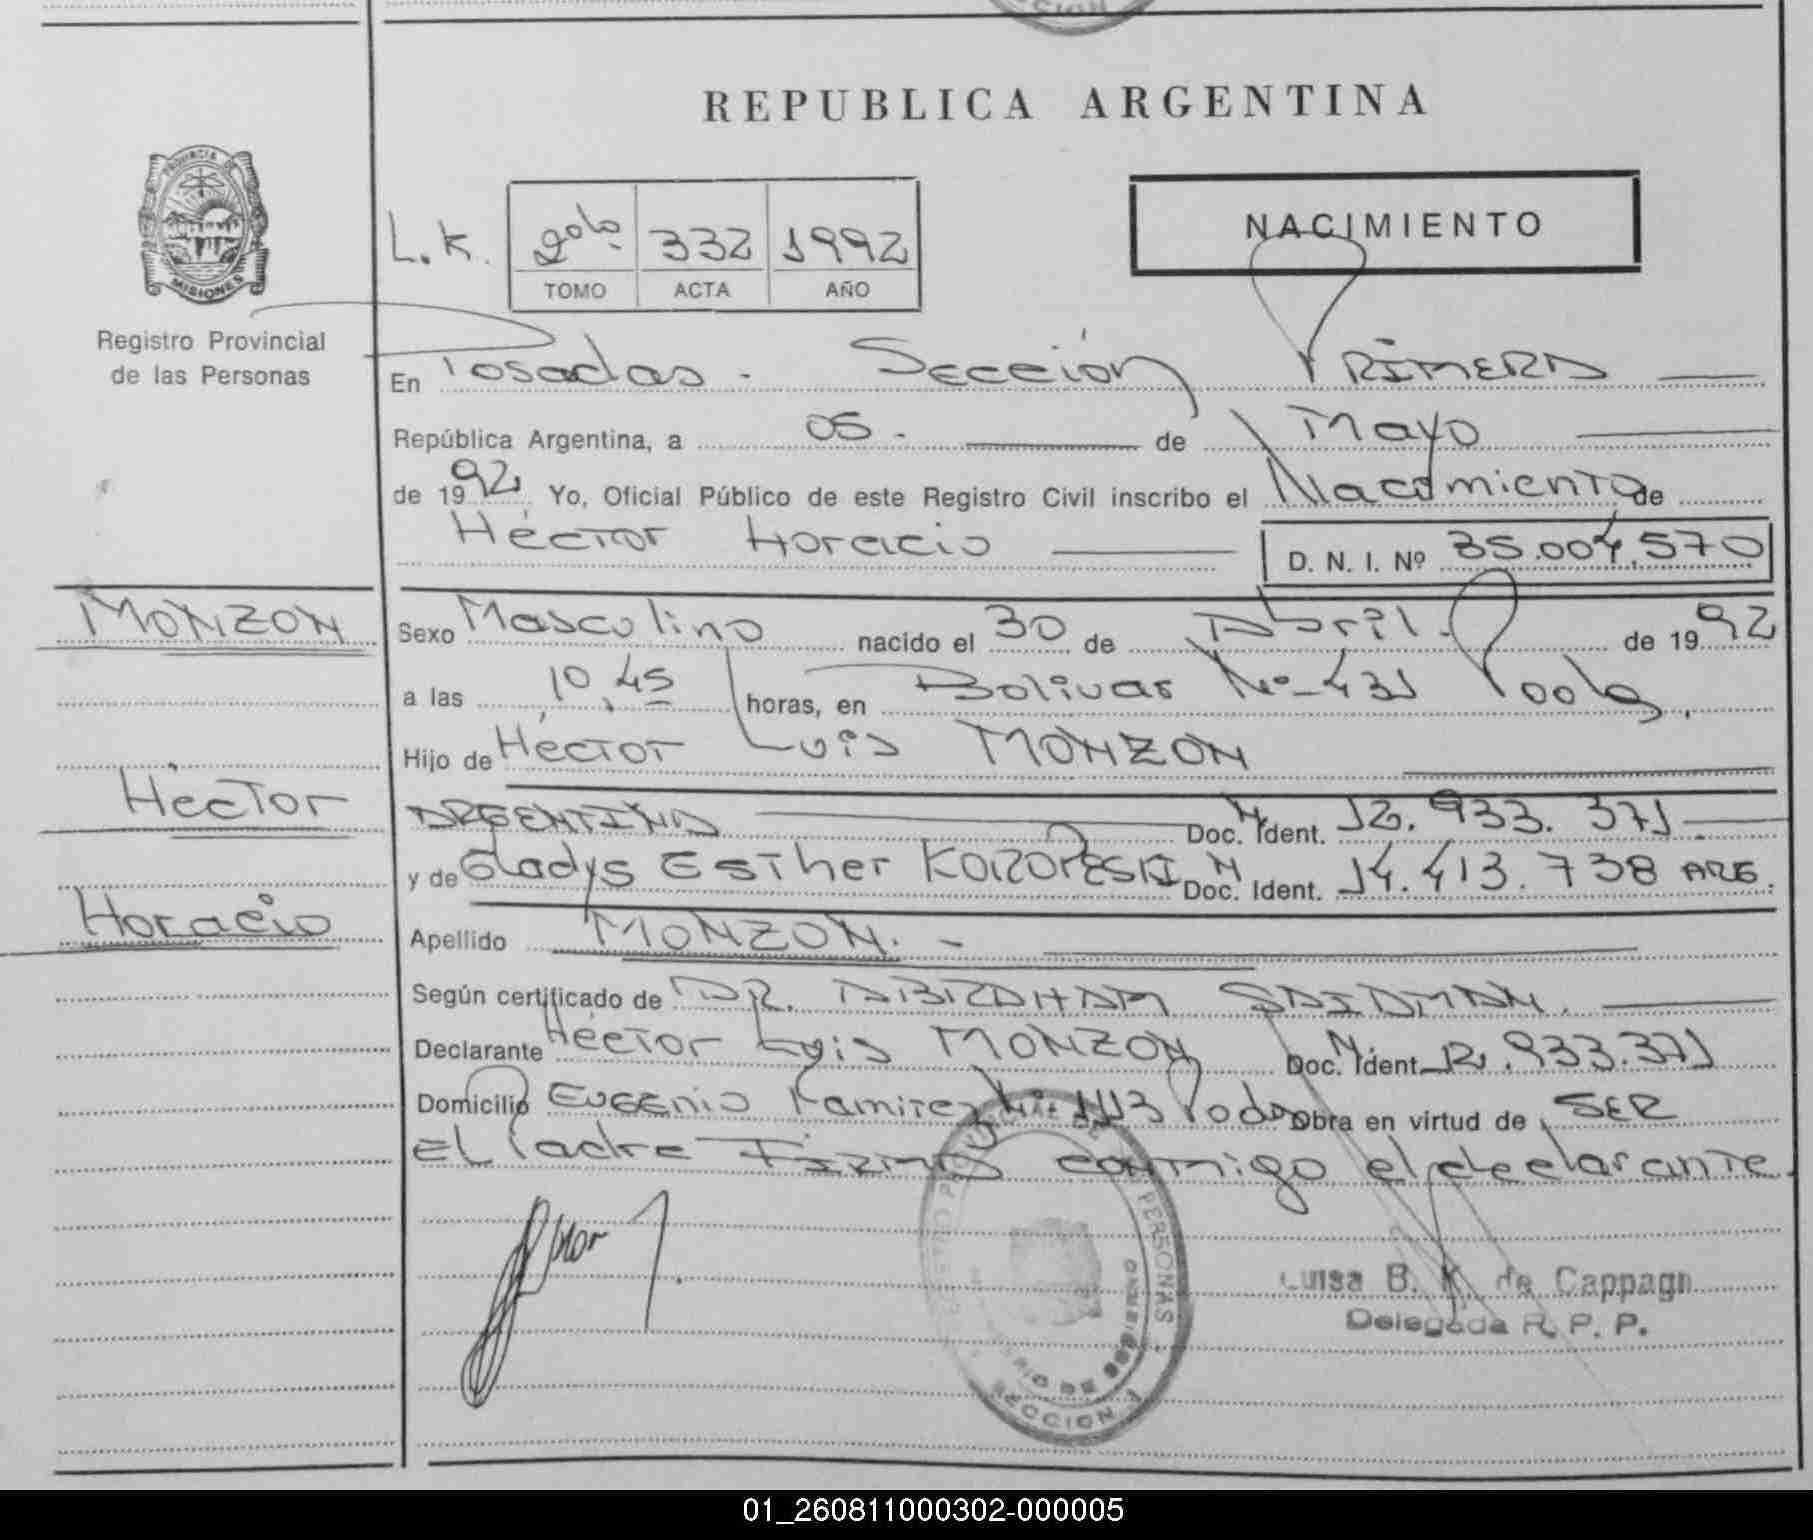 REPUBLICA ARGENTINA
PROVINCIA DE MISIONES
Registro Provincial
de las Personas
L.K. 2do 332 1992
TOMO ACTA AÑO
NACIMIENTO
En Posadas - Sección PRIMERA
República Argentina, a 05 - de Mayo
de 1992 Yo, Oficial Público de este Registro Civil inscribo el Nacimiento de
Héctor Horacio D. N. I. Nº 35.004.570
MONZON
Héctor
Horacio
Sexo Masculino nacido el 30 de Abril de 1992
a las 10,45 horas, en Bolivar Nº 431
Hijo de Héctor Luis MONZON
ARGENTINO Doc. Ident. M 12.933.371
y de Gladys Esther Doc. Ident. M 14.413.738 ARG.
Apellido MONZON. -
Según certificado de DR. ABRAHAM SAIDMAN.
Declarante Héctor Luis MONZON Doc. Ident. M 12.933.371
Domicilio Eugenio Ramirez Nº 1113 Obra en virtud de SER
EL Padre FIRMA conmigo el declarante.
Luisa B. K. de Cappagn
Delegada R. P. P.
PERSONAS
SECCION 1
01_260811000302-000005